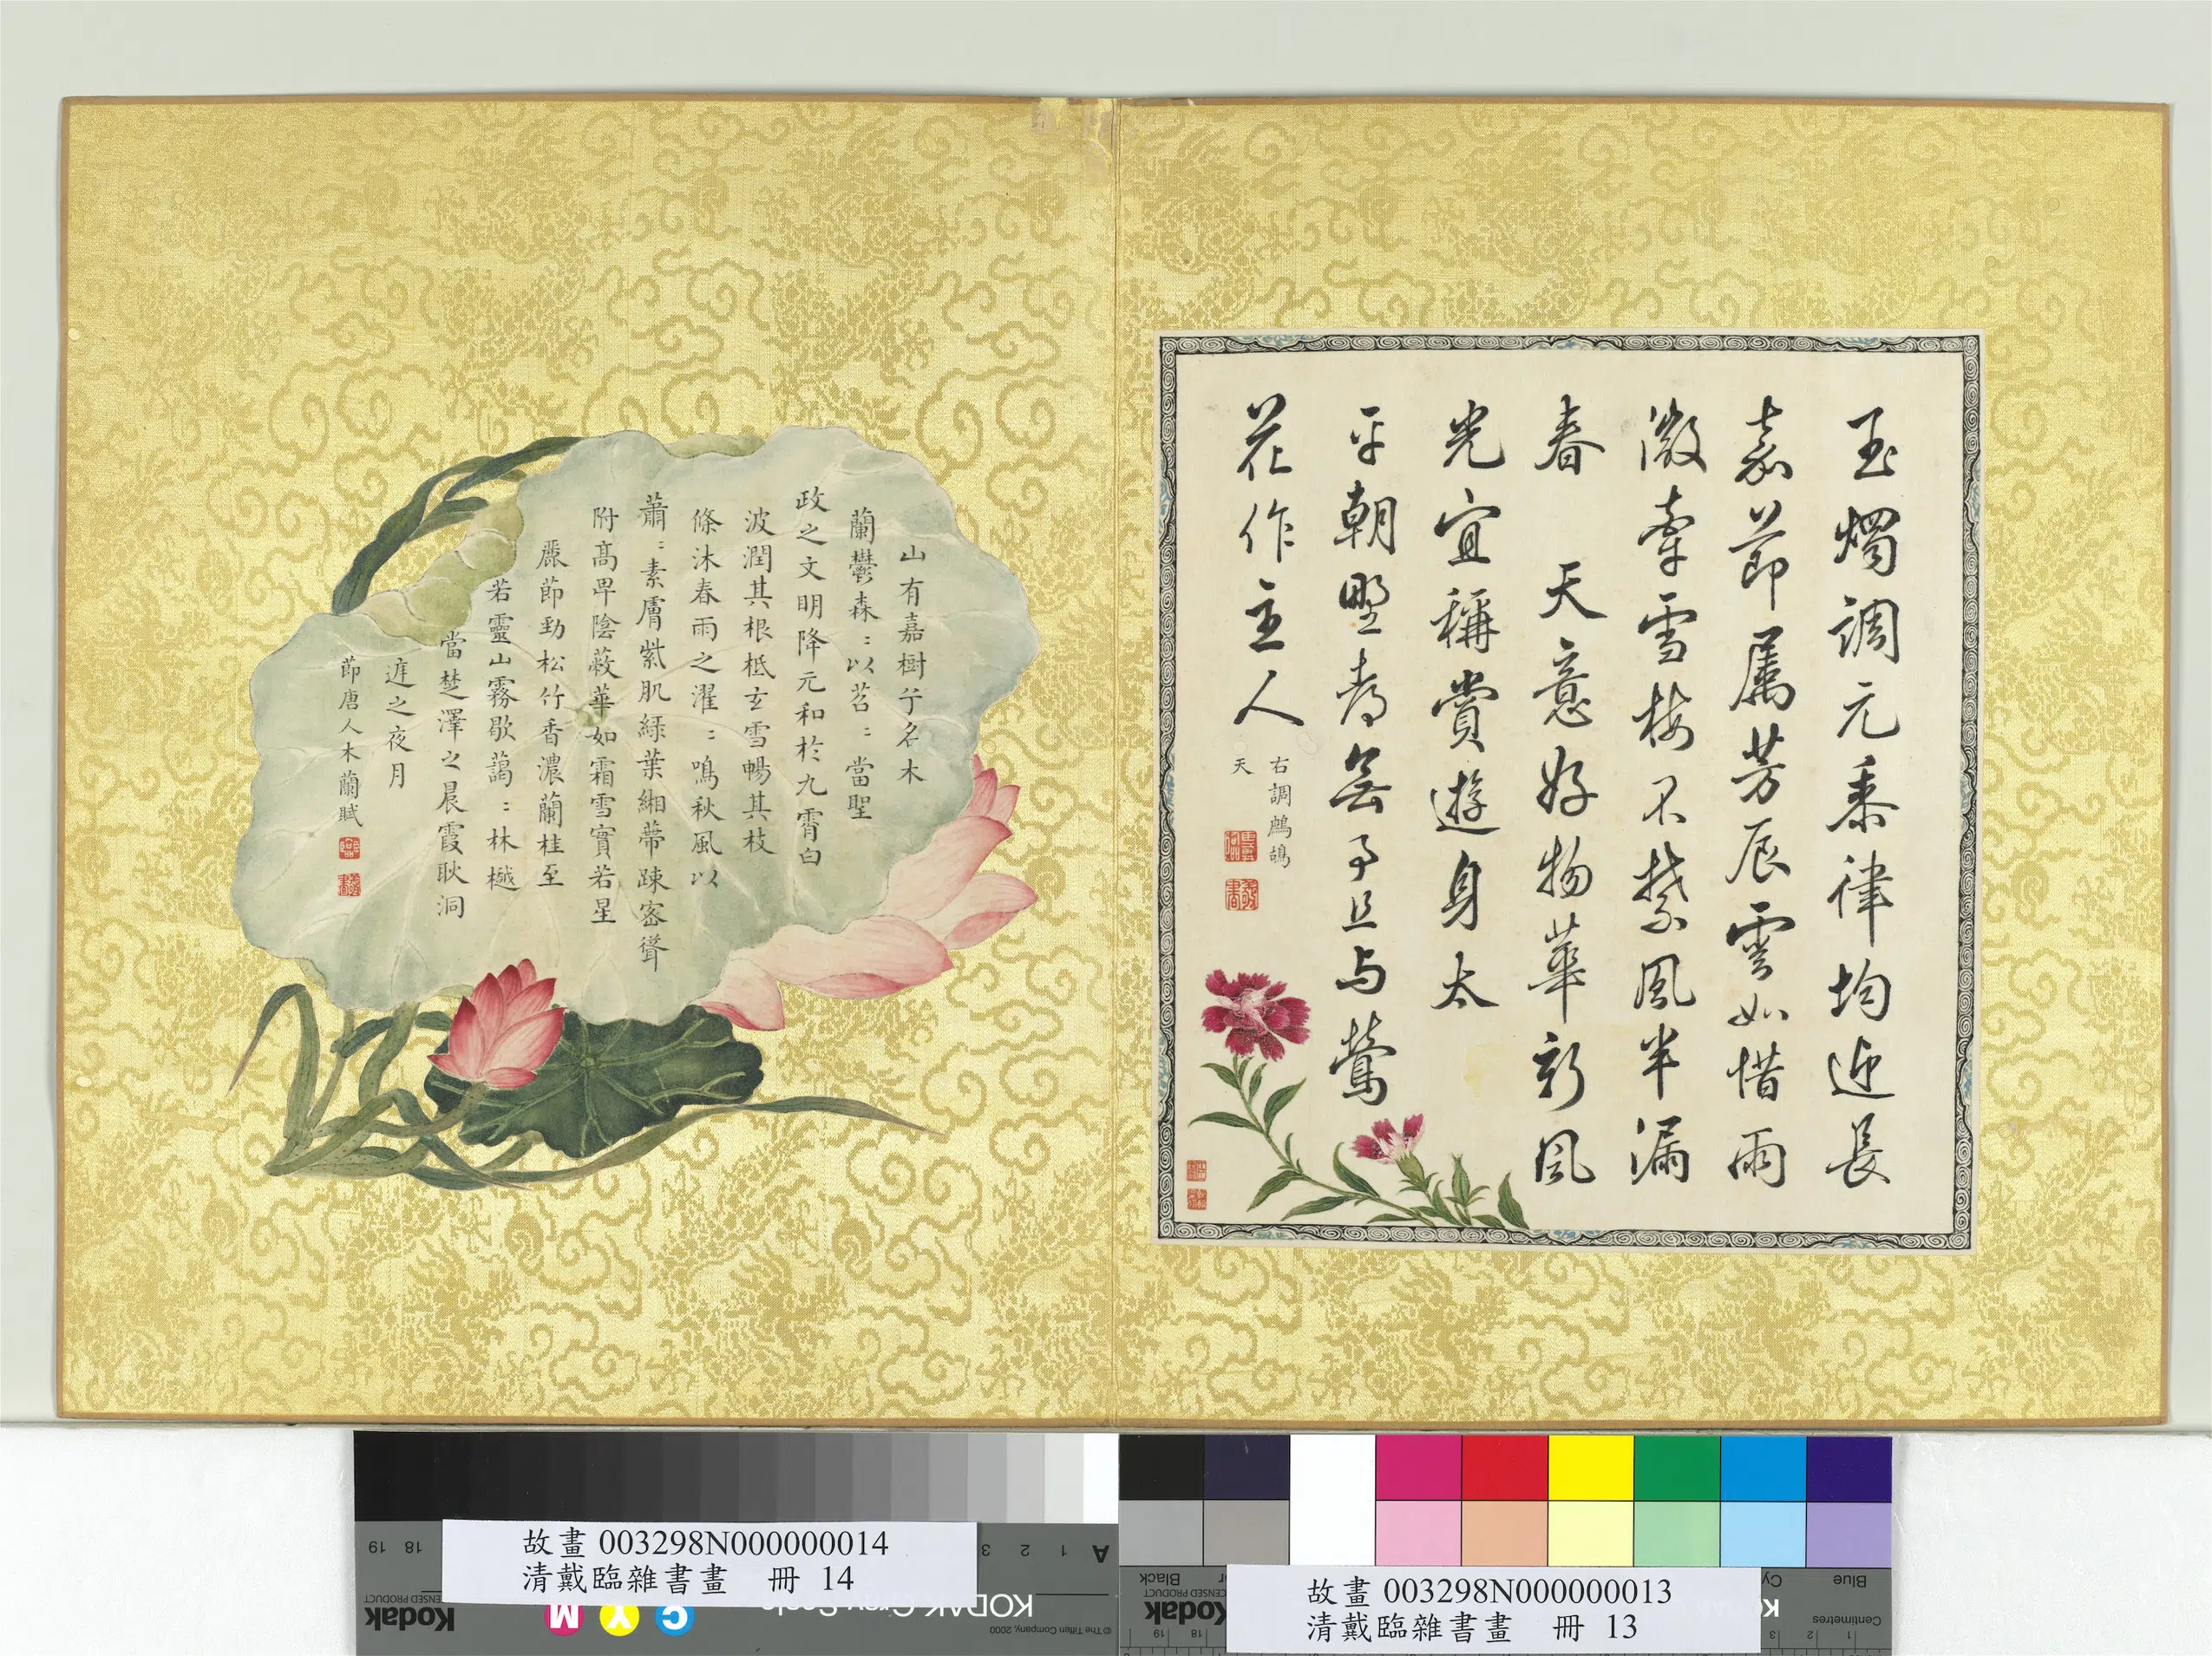 玉燭調元黍律均迎長
嘉節屬芳辰雲如惜雨
微牽雪梅不禁風半漏
春 天意好物華新風
光宜稱賞遊身太
平朝野春無事且与鶯
花作主人
右調鷓鴣
天
山有嘉樹兮名木
蘭鬱森〻以苕〻當聖
政之文明降元和於九霄白
波潤其根柢玄雪暢其枝
條沐春雨之濯〻鳴秋風以
蕭〻素膚紫肌綠葉緗蔕疎密聳
附高卑陰蔽華如霜雪實若星
麗節勁松竹香濃蘭桂至
若靈山霧歇藹〻林樾
當楚澤之晨霞耿洞
庭之夜月
節唐人木蘭賦
故畫 003298N000000014
清戴臨雜書畫 冊 14
故畫 003298N000000013
清戴臨雜書畫 冊 13
A 1 2 3
18 19
KODAK
© The Tiffen Company, 2000
LICENSED PRODUCT
Kodak
M Y C
Black
Blue
Centimetres
LICENSED PRODUCT
Kodak
18 19